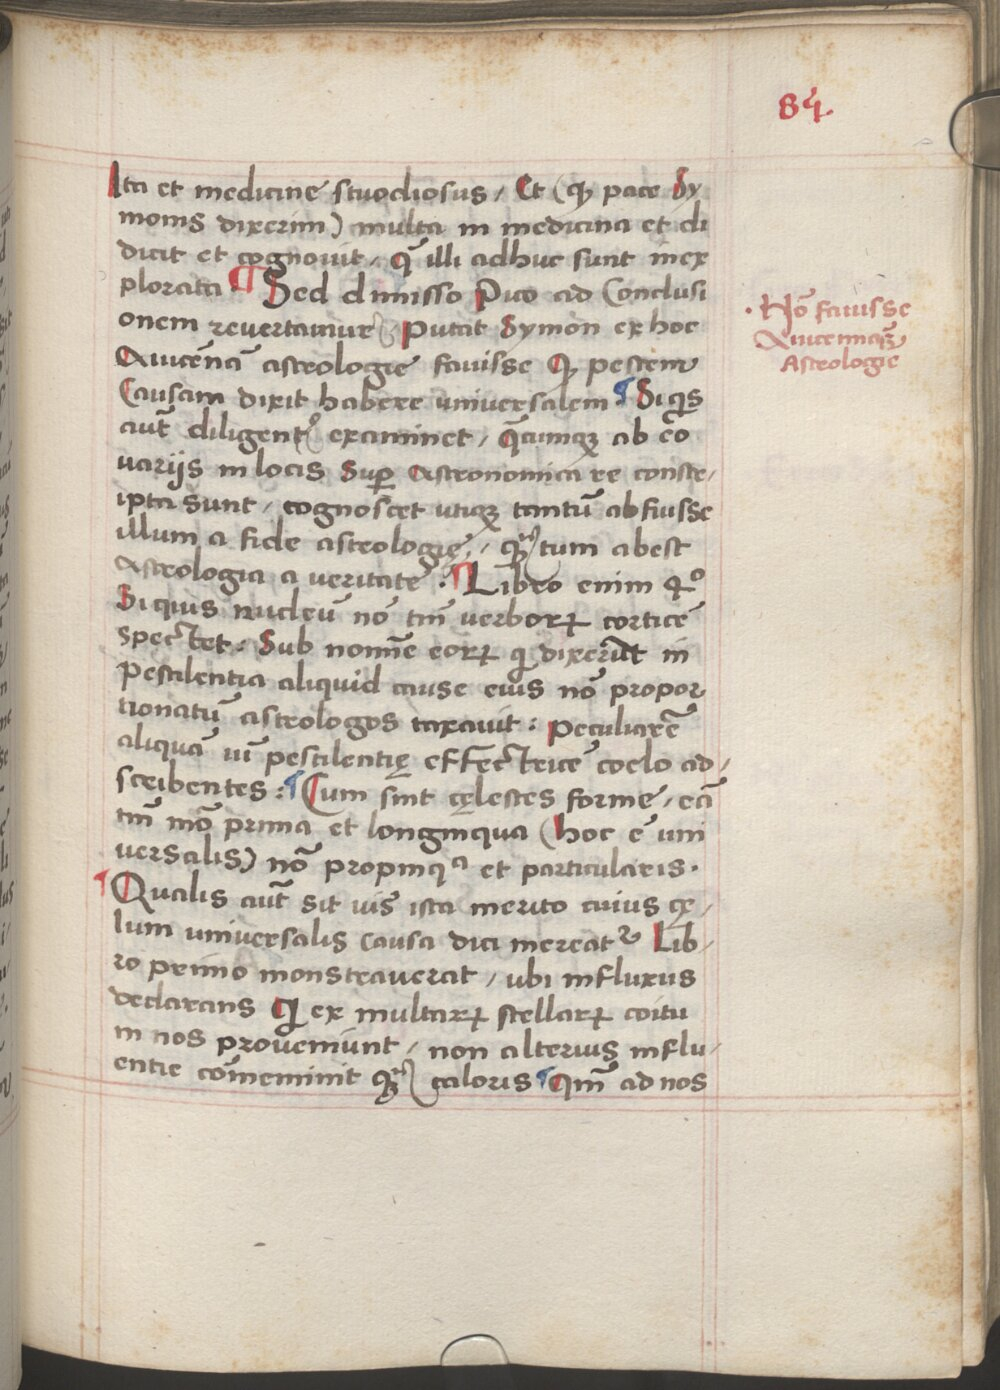 84.
Ita et medicine stvodiosus, Et (qꝫ pace Sy
monis dixerim) multa in medicina et di
dicit et cognovit, q̄ illi adhuc sunt inex
plorata ¶ Sed dimisso Pico ad Conclusi
onem revertamur, Putat Symon ex hoc
Avicēnā astrologie favisse Qꝫ pestem
Causam dixit habere universalem ¶ Si qͥs
aūt diligentꝰ examinet, q̄cumqꝫ ab eo
varijs in locis Suꝑ Astronomica re conscr,
ipta sunt, cognoscet utiqꝫ tantū abfuisse
illum a fide astrologię, qꝫtum abest
Astrologia a veritate. ¶ Libro enim 4º
Si quis nucleū nō tm̄ verborꝝ corticē
spectet: Sub nomīe eorꝝ qͥ dixerūt in
Pestilentia aliquid cause eius nō propor
tionatū astrologos taxavit: Peculiarē
aliquā vī pestilentię effectricē coelo ad,
scribentes: ¶ Cum sint cęlestes forme, eā
tm̄ mō prima et longinqua (hoc ē uni
versalis) nō propinqᵃ et particularis.
¶ Qualis aūt sit vis ista merito cuius cę,
lum universalis causa dici mereatᷣ Lib,
ro primo monstraverat, ubi influxus
declarans Qͥ ex multarꝝ stellarꝝ coitu
in nos proveniunt, non alterius influ,
entie cōmeminit qꝫ caloris ¶ Qm̄ ad nos
. Nō favisse
Avicennaꝫ
Astrologie